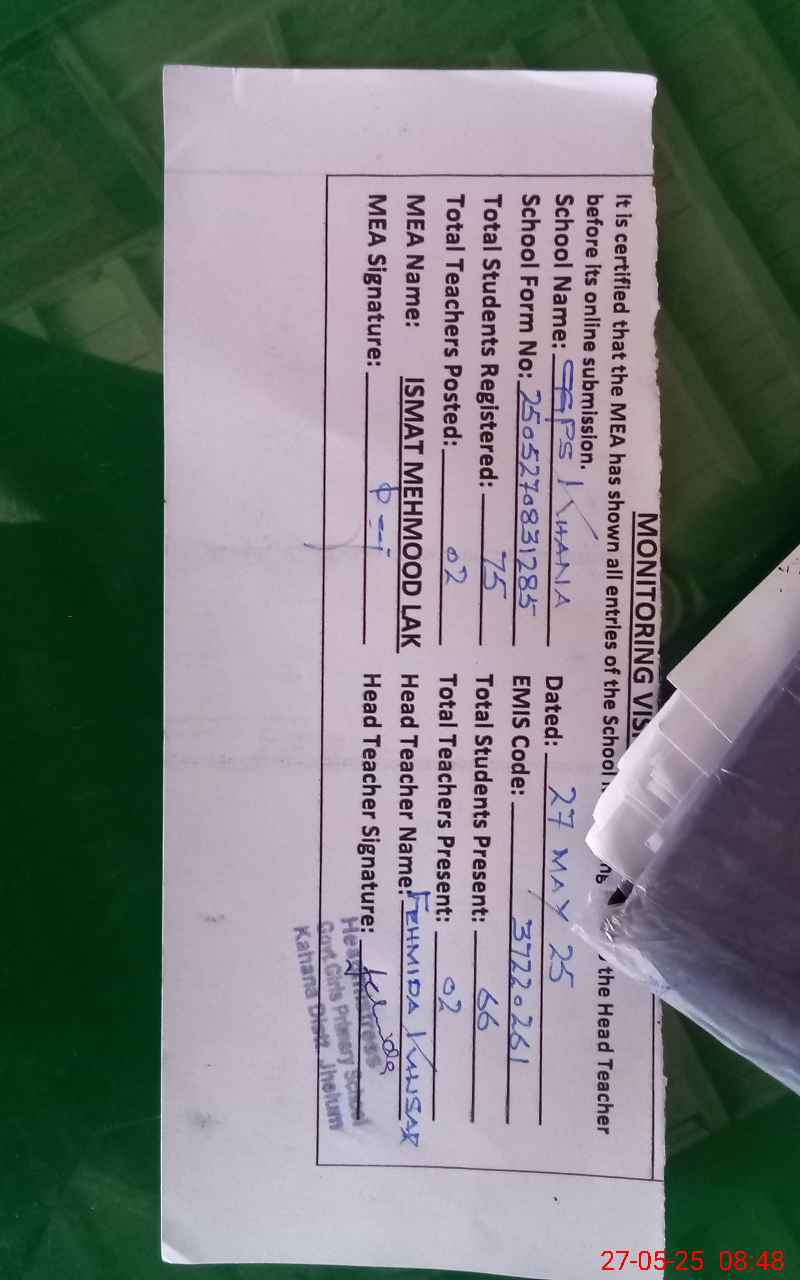 MONITORING VIS
It is certified that the MEA has shown all entries of the School the Head Teacher
before its online submission.
School Name: GGPS KHANA Dated: 27 MAY 25
School Form No: 2505270831285 EMIS Code: 37220261
Total Students Registered: 75 Total Students Present: 66
Total Teachers Posted: 02 Total Teachers Present: 02
MEA Name: ISMAT MEHMOOD LAK Head Teacher Name: FEHMIDA KAUSAR
MEA Signature: Head Teacher Signature:
Headmistress
Govt. Girls Primary School
Kahana Distt. Jhelum
27-05-25 08:48